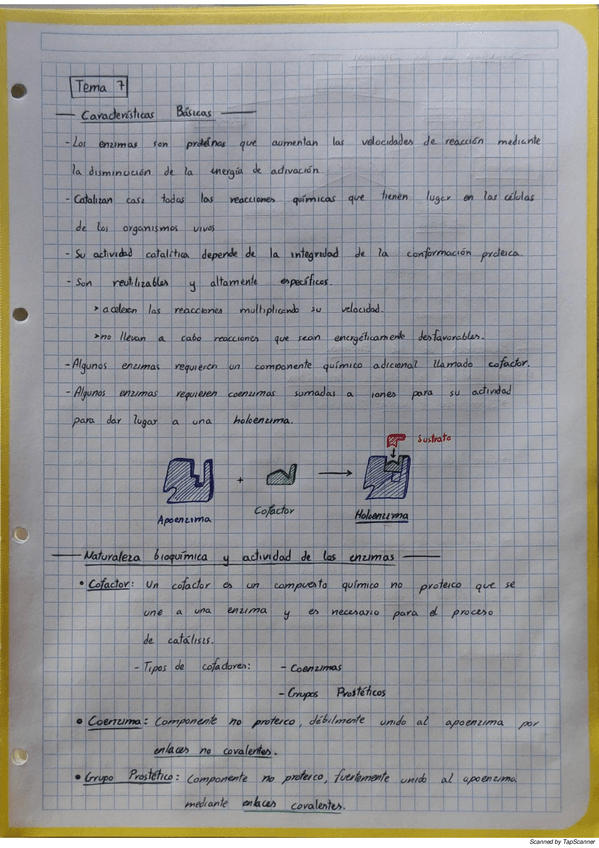 Tema 7
Características Básicas
- Los enzimas son proteínas que aumentan las velocidades de reacción mediante
la disminución de la energía de activación
- Catalizan casi todas las reacciones químicas que tienen lugar en las células
de los organismos vivos
- Su actividad catalítica depende de la integridad de la conformación proteica.
- Son reutilizables y altamente específicos.
> aceleran las reacciones multiplicando su velocidad.
> no llevan a cabo reacciones que sean energéticamente desfavorables.
- Algunos enzimas requieren un componente químico adicional llamado cofactor.
- Algunos enzimas requieren coenzimas sumadas a iones para su actividad
para dar lugar a una holoenzima.
Sustrato
+
Apoenzima
Cofactor
Holoenzima
Naturaleza bioquímica y actividad de los enzimas
• Cofactor: Un cofactor es un compuesto químico no proteico que se
une a una enzima y es necesario para el proceso
de catálisis.
- Tipos de cofactores: - Coenzimas
- Grupos Prostéticos
• Coenzima: Componente no proteico, débilmente unido al apoenzima por
enlaces no covalentes.
• Grupo Prostético: Componente no proteico, fuertemente unido al apoenzima
mediante enlaces covalentes.
Scanned by TapScanner